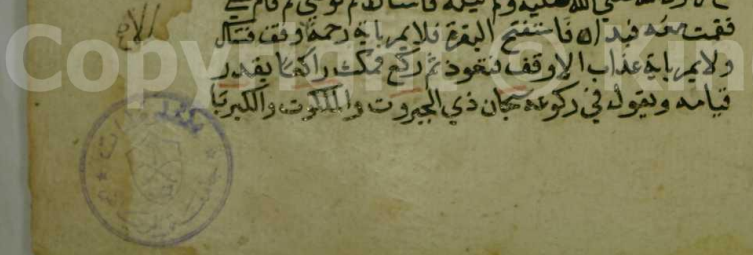 صلى الله عليه وسلم ليلة فاستاك ثم توضى ثم قام يصلي
فقمت معه فبداه فاستفتح البقرة فلا يمر باية رحمة الا وقف فسال
ولا يمر باية عذاب الا وقف فتعوذ ثم ركع فمكث راكعا بقدر
قيامه ويقول في ركوعه سبحان ذي الجبروت والملكوت والكبريا
Copy